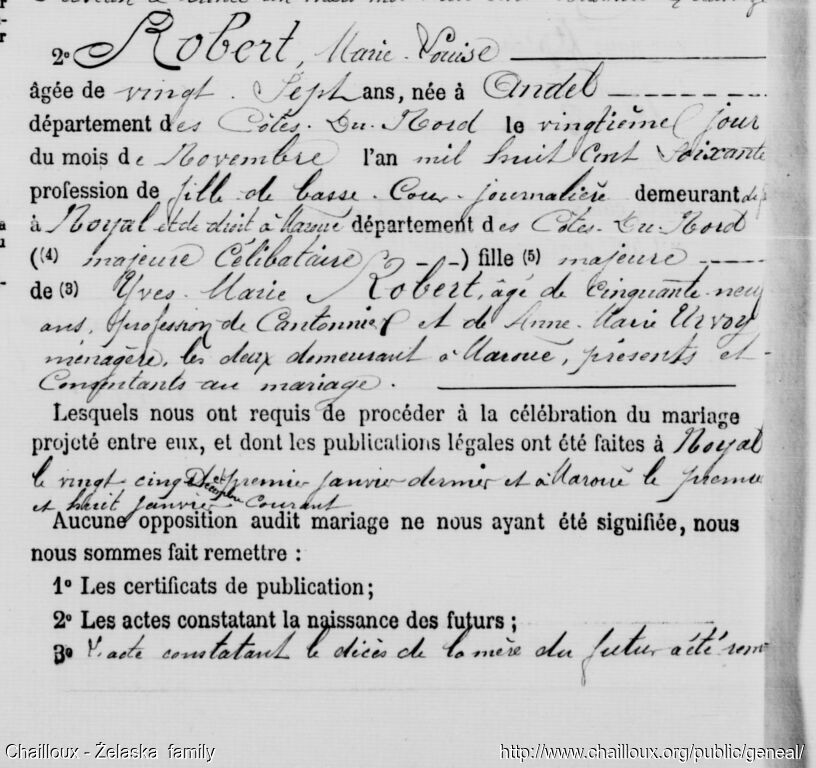 2° Robert, Marie-Louise
âgée de vingt-Sept ans, née à Andel
département des Côtes-Du-Nord le vingtième jour
du mois de Novembre l'an mil huit cent soixante
profession de fille de basse-Cour-journalière demeurant
à Noyal et de droit à Maroué département des Côtes-Du-Nord
((4) majeure célibataire - - -) fille (5) majeure
de (3) Yves-Marie Robert, âgé de cinquante-neuf
ans, profession de Cantonnier et de Anne-Marie Urvoy
ménagère, les deux demeurant à Maroué, présents et
Consentants au mariage.
Lesquels nous ont requis de procéder à la célébration du mariage
projeté entre eux, et dont les publications légales ont été faites à Noyal
le vingt-cinq Décembre et premier janvier dernier et à Maroué le premier
et huit janvier courant
Aucune opposition audit mariage ne nous ayant été signifiée, nous
nous sommes fait remettre :
1° Les certificats de publication;
2° Les actes constatant la naissance des futurs ;
3° L'acte constatant le décès de la mère du futur a été
Chailloux - Želaska family
http://www.chailloux.org/public/geneal/